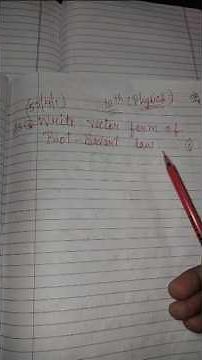 12th (Physics)
Write vector form of
Biot-Savart law.